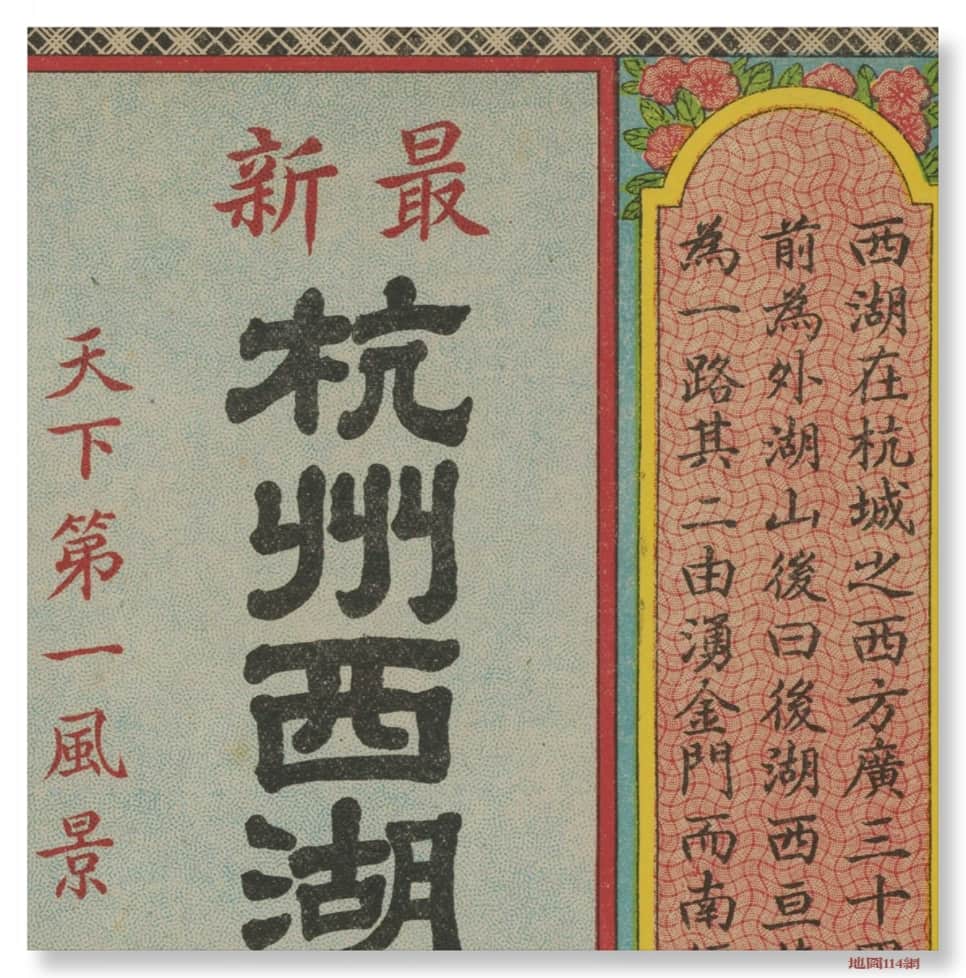 西湖在杭城之西方廣三十
前為外湖山後曰後湖西亘
為一路其二由湧金門而南
最新
杭州西湖
天下第一風景
地圖114網